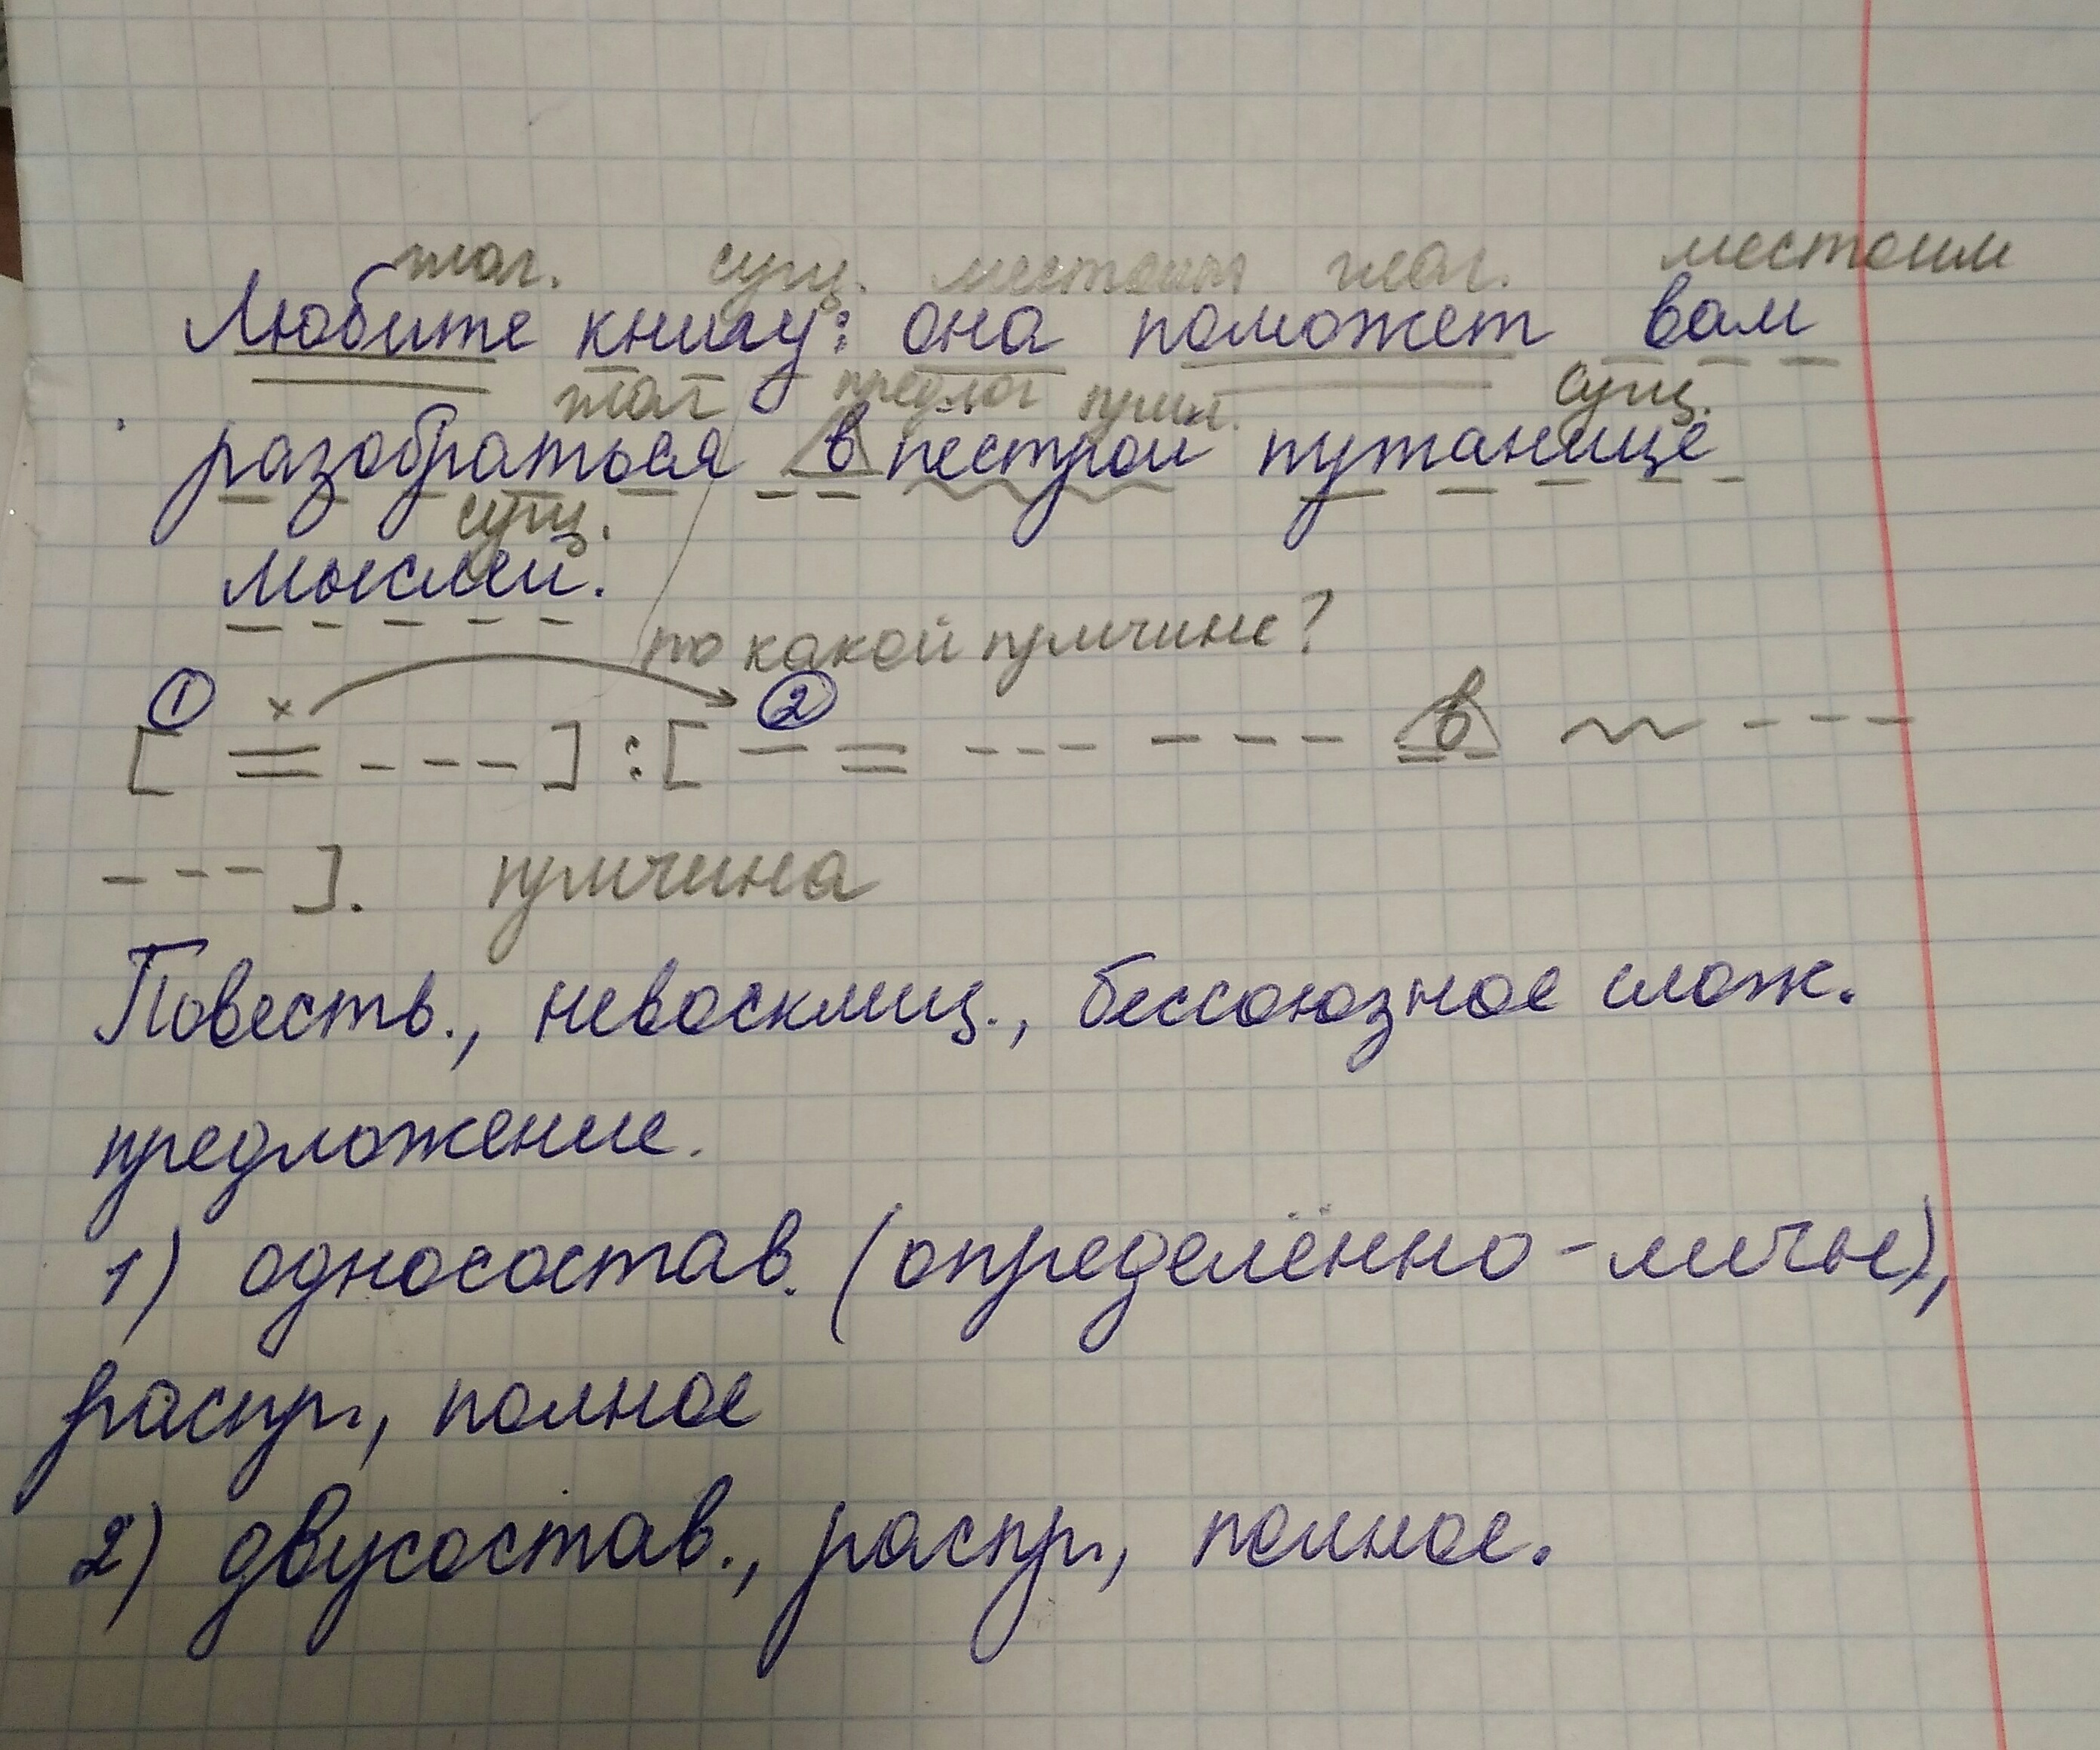 глаг. сущ. местоим глаг. местоим
Любите книгу: она поможет вам
глаг предлог прил. сущ.
разобраться в пестрой путанице
сущ.
мыслей.
по какой причине?
1 × 2
[ = --- ] : [ — = --- --- в ~~ ---
--- ]. причина
Повеств., невосклиц., бессоюзное слож.
предложение.
1) односостав. (определённо-личн),
распр., полное
2) двусостав., распр., полное.